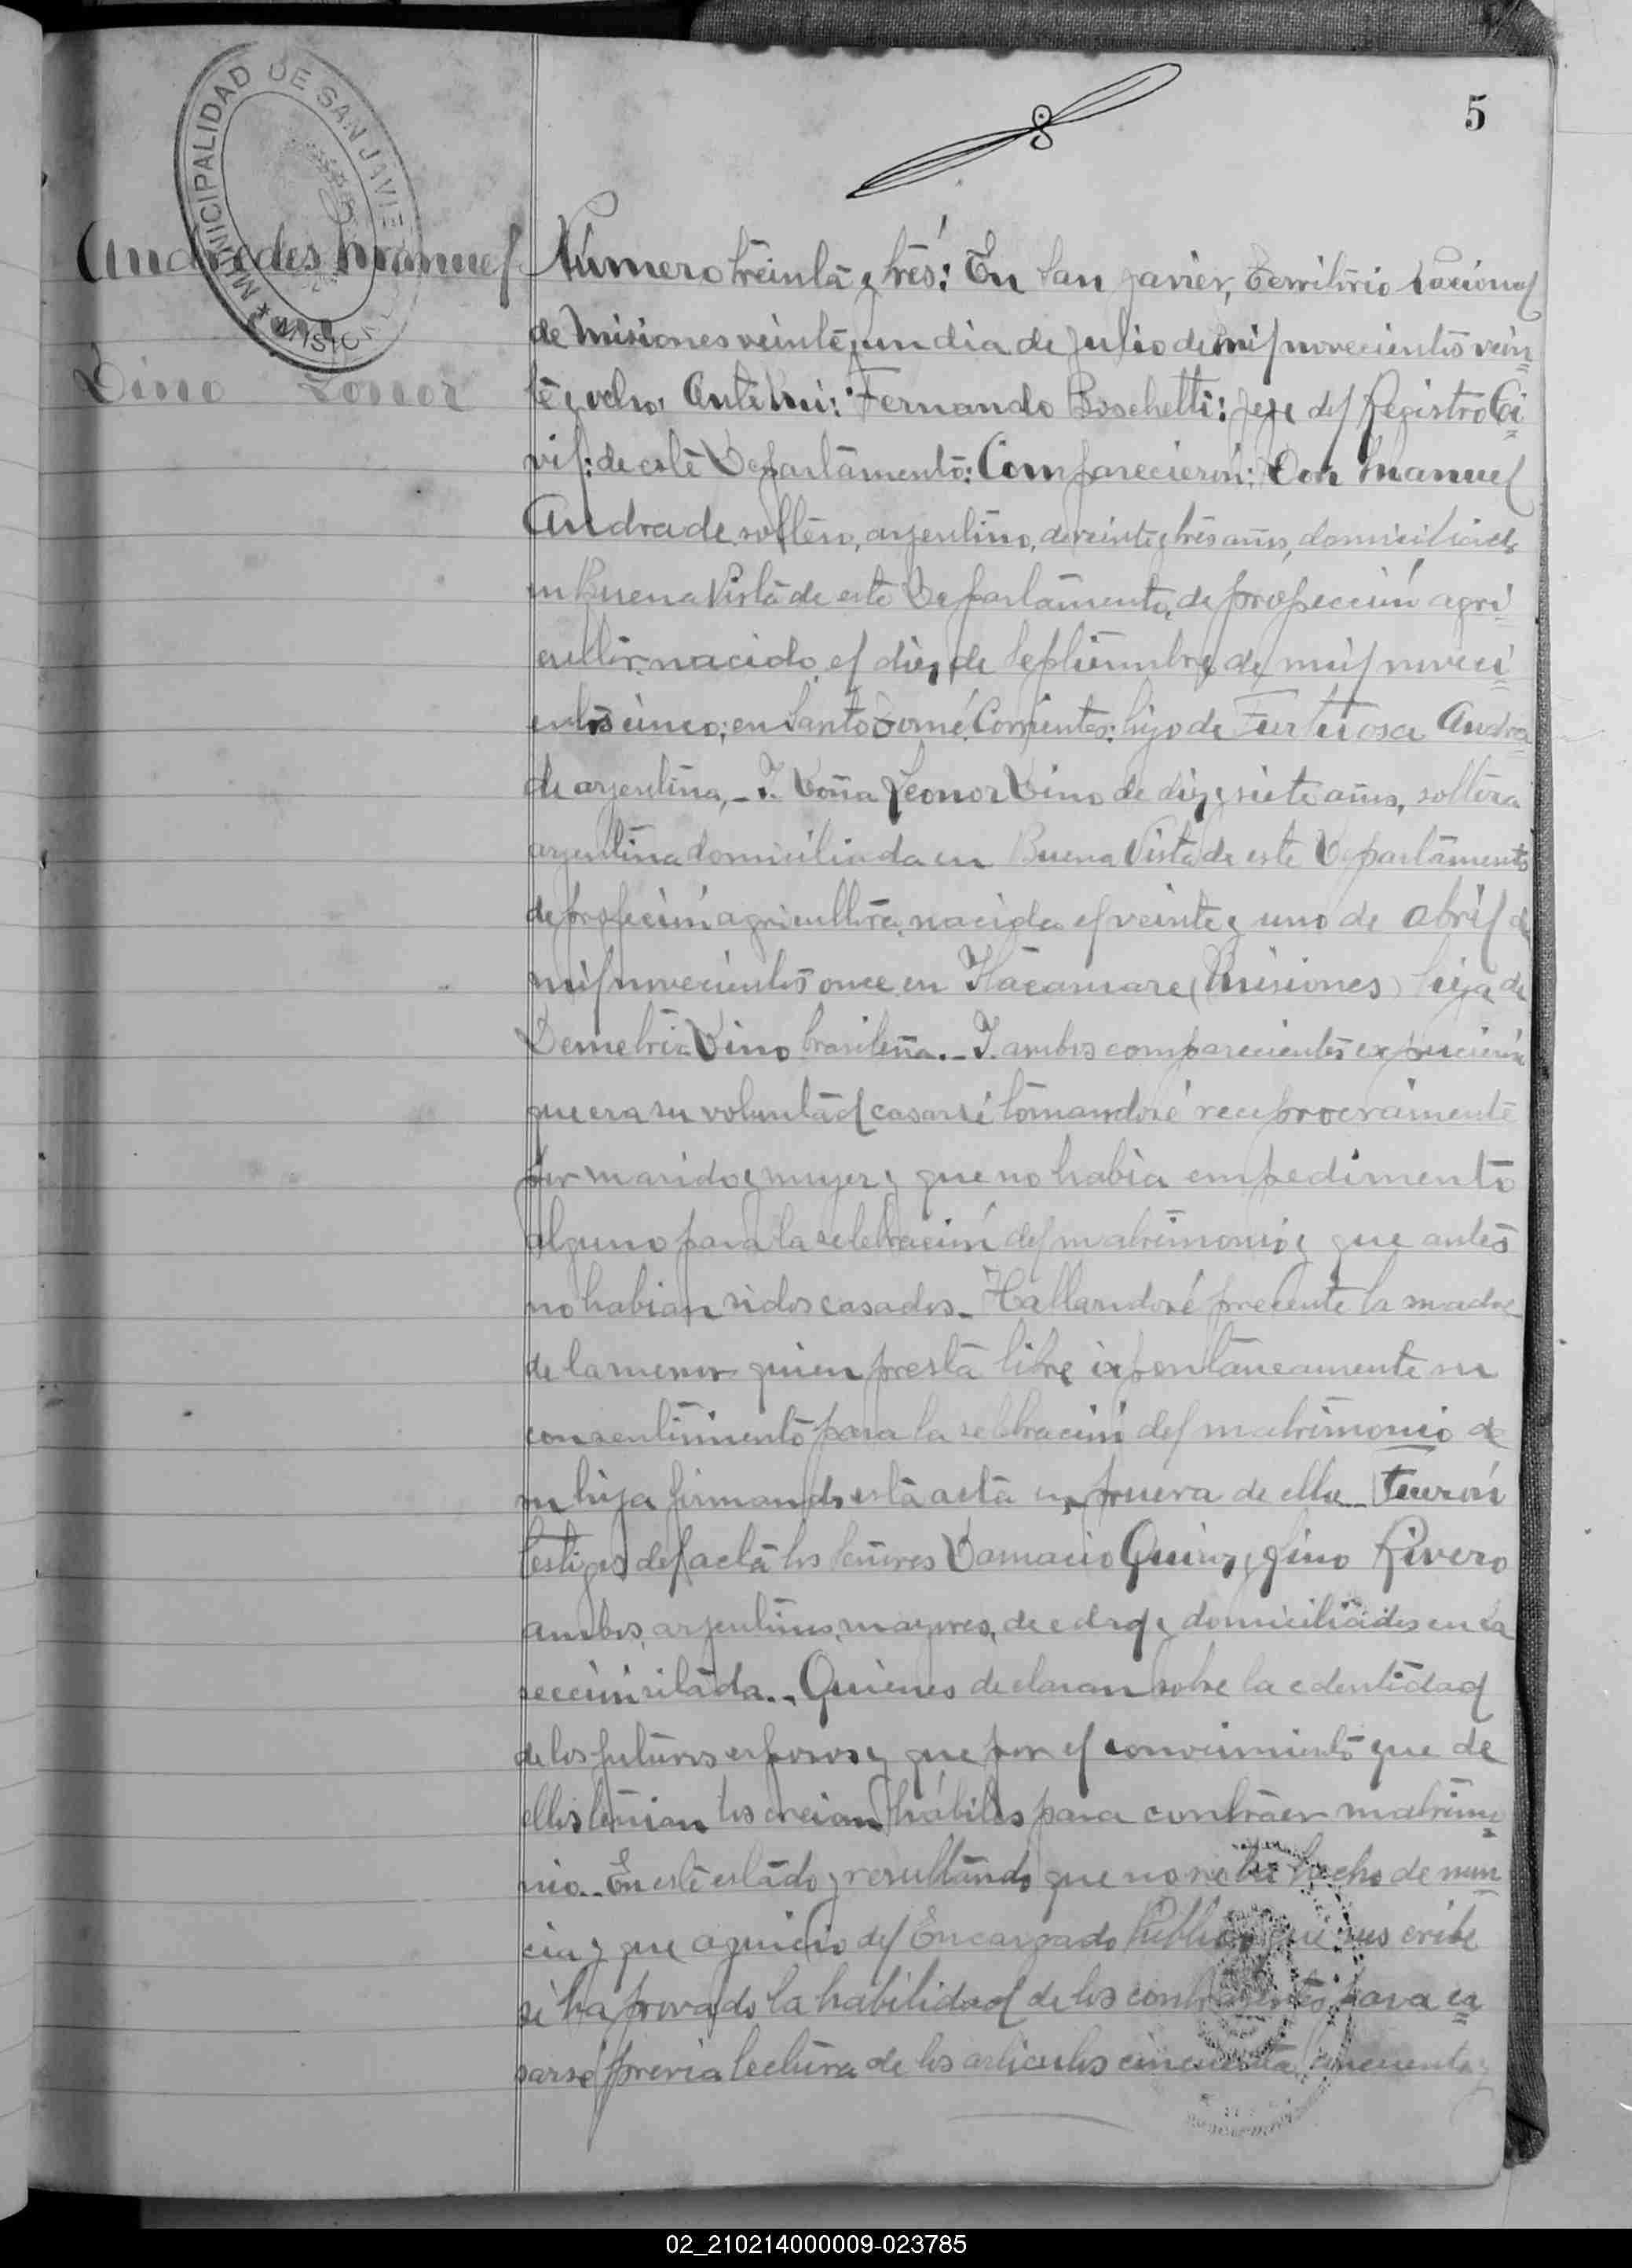 5
MUNICIPALIDAD DE SAN JAVIE
MISION
Andredes Manuel
con
Dino Lonor
Número treinta y trés: En San Javier, Territorio Nacional
de Misiones veinte y un dia de Julio de mil novecientos vein
te y ocho: Ante Mi: Fernando Boschetti: Jefe del Registro Ci
vil: de este Departamento: Comparecieron: Don Manuel
Andrade soltero, argentino, de veinte y tres años, domiciliado
en Buena Vista de este Departamento, de profección agri
cultor, nacido el diez de Septiembre de mil noveci
entos cinco; en Santo Tomé Corrientes: hijo de Furtuosa Andra
de argentina, - I. Doña Leonor Dino de diez y siete años, soltera
argentina domiciliada en Buena Vista de este Departamento
de profeción agricultora, nacida el veinte y uno de abril de
mil novecientos once en Itacaruare (Misiones) hija de
Demetria Dino brasileña. - I. ambos comparecientes expucierón
que era su voluntad casarsé tomandosé reciprocramente
por marido y mujer y que no habia empedimento
alguno para la selebración del matrimonio y que antes
no habian sidos casados - Hallandosé precente la madre
de la menor quien presta libre i expontaneamente su
consentimiento para la selebración del matrimonio de
su hija firmando esta acta en prueva de ello - Fuerón
testigos del acta los Señores Damacio Quiroz y Lino Rivero
ambos, argentinos, mayores, de edad y domiciliados en la
sección citada. - Quienes declaran sobre la edentidad
de los futuros esposos y que por el conocimiento que de
ellos tenian los creian hábiles para contraer matrimo
nio. - En este estado y resultando que no se ha hecho denun
cia y que a juicio del Encargado Público que suscribe
sé ha provado la habilidad de los contrayentes para ca
sarsé previa lectura de los articulos cincuenta, cincuenta y
02_210214000009-023785